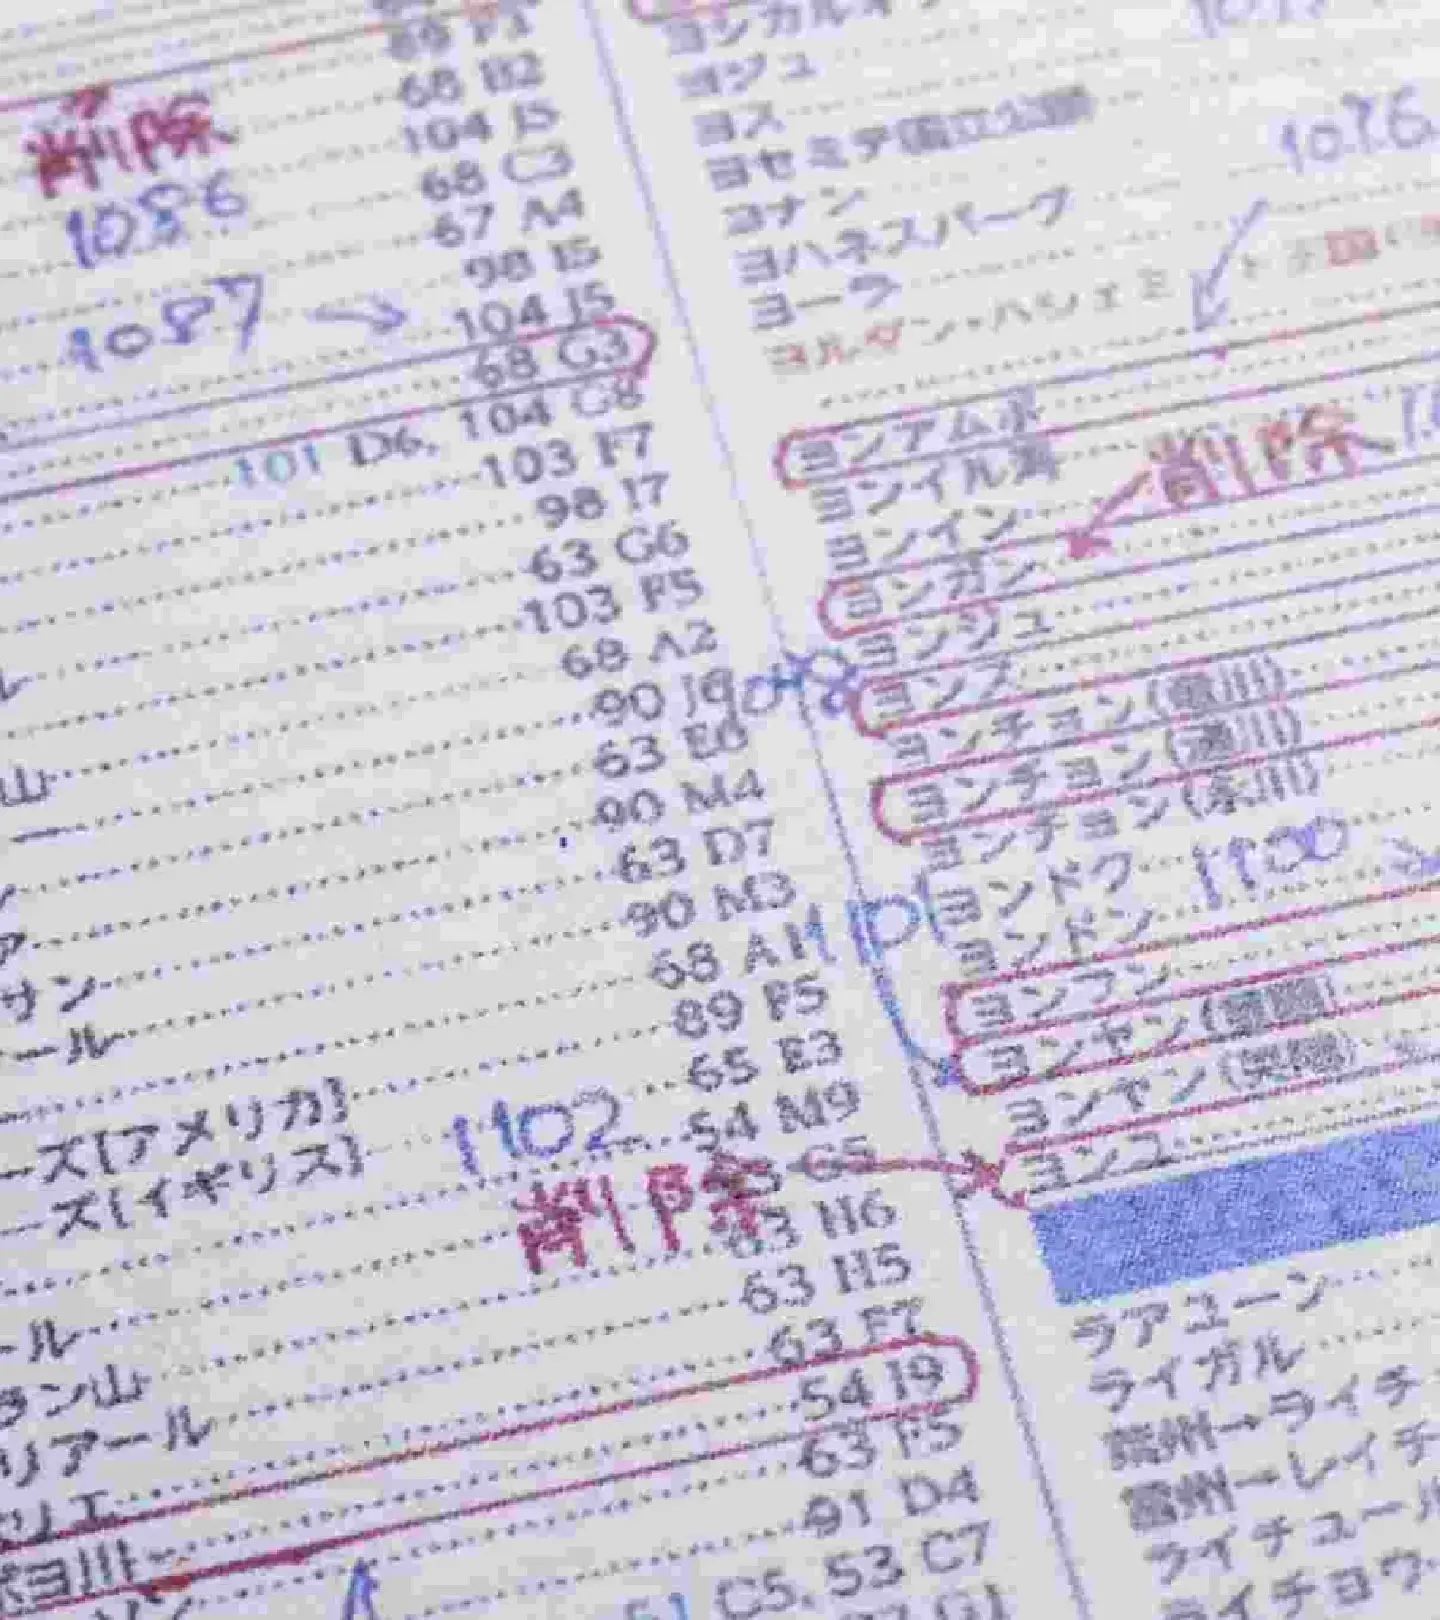 68 B2
削除
104 I5
1086
68 C3
67 A4
98 I5
1087
104 J5
68 G3
101 D6, 104 G8
103 F7
98 I7
63 G6
103 F5
68 A2
90 J9
63 E6
山
90 M4
63 D7
90 M3
68 A1
サン
89 F5
ール
65 E3
ーズ[アメリカ]
1102
54 M9
ーズ[イギリス]
G5
削除
63 H6
63 H5
ール
63 F7
ラン山
54 I9
リアール
63 F5
リエ
91 D4
ヨ川
C5, 53 C7
ヨジュ
ヨス
ヨセミテ国立公園
1076
ヨナン
ヨハネスパーク
ヨーラ
ヨルダン・ハシェミト王国
ヨンアムポ
ヨンイル湾
削除
ヨンイン
ヨンガン
ヨンジュ
ヨンス
ヨンチョン
ヨンチョン(漣川)
ヨンチョン(永川)
ヨンドク
1100
1101
ヨンドン
ヨンフン
ヨンヤン
ヨンヤン(英陽)
ヨンユ
ラアユーン
ライガル
ライチ
レイチ
ライチュール
ライチョウ